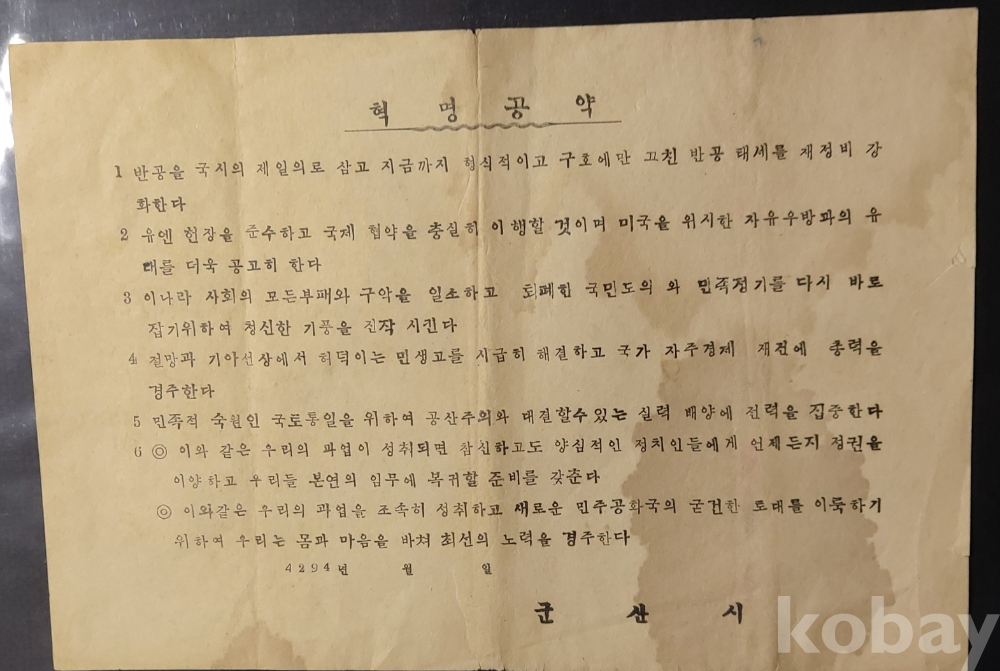 혁 명 공 약
1 반공을 국시의 제일의로 삼고 지금까지 형식적이고 구호에만 끄친 반공 태세를 재정비 강
화한다
2 유엔 헌장을 준수하고 국제 협약을 충실히 이행할 것이며 미국을 위시한 자유우방과의 유
대를 더욱 공고히 한다
3 이나라 사회의 모든부패와 구악을 일소하고 퇴폐한 국민도의 와 민족정기를 다시 바로
잡기위하여 청신한 기풍을 진작 시킨다
4 절망과 기아선상에서 허덕이는 민생고를 시급히 해결하고 국가 자주경제 재건에 총력을
경주한다
5 민족적 숙원인 국토통일을 위하여 공산주의와 대결할수있는 실력 배양에 전력을 집중한다
6 ◎ 이와 같은 우리의 과업이 성취되면 참신하고도 양심적인 정치인들에게 언제든지 정권을
이양하고 우리들 본연의 임무에 복귀할 준비를 갖춘다
◎ 이와같은 우리의 과업을 조속히 성취하고 새로운 민주공화국의 굳건한 토대를 이룩하기
위하여 우리는 몸과 마음을 바쳐 최선의 노력을 경주한다
4294년 월 일
군 산 시
kobay